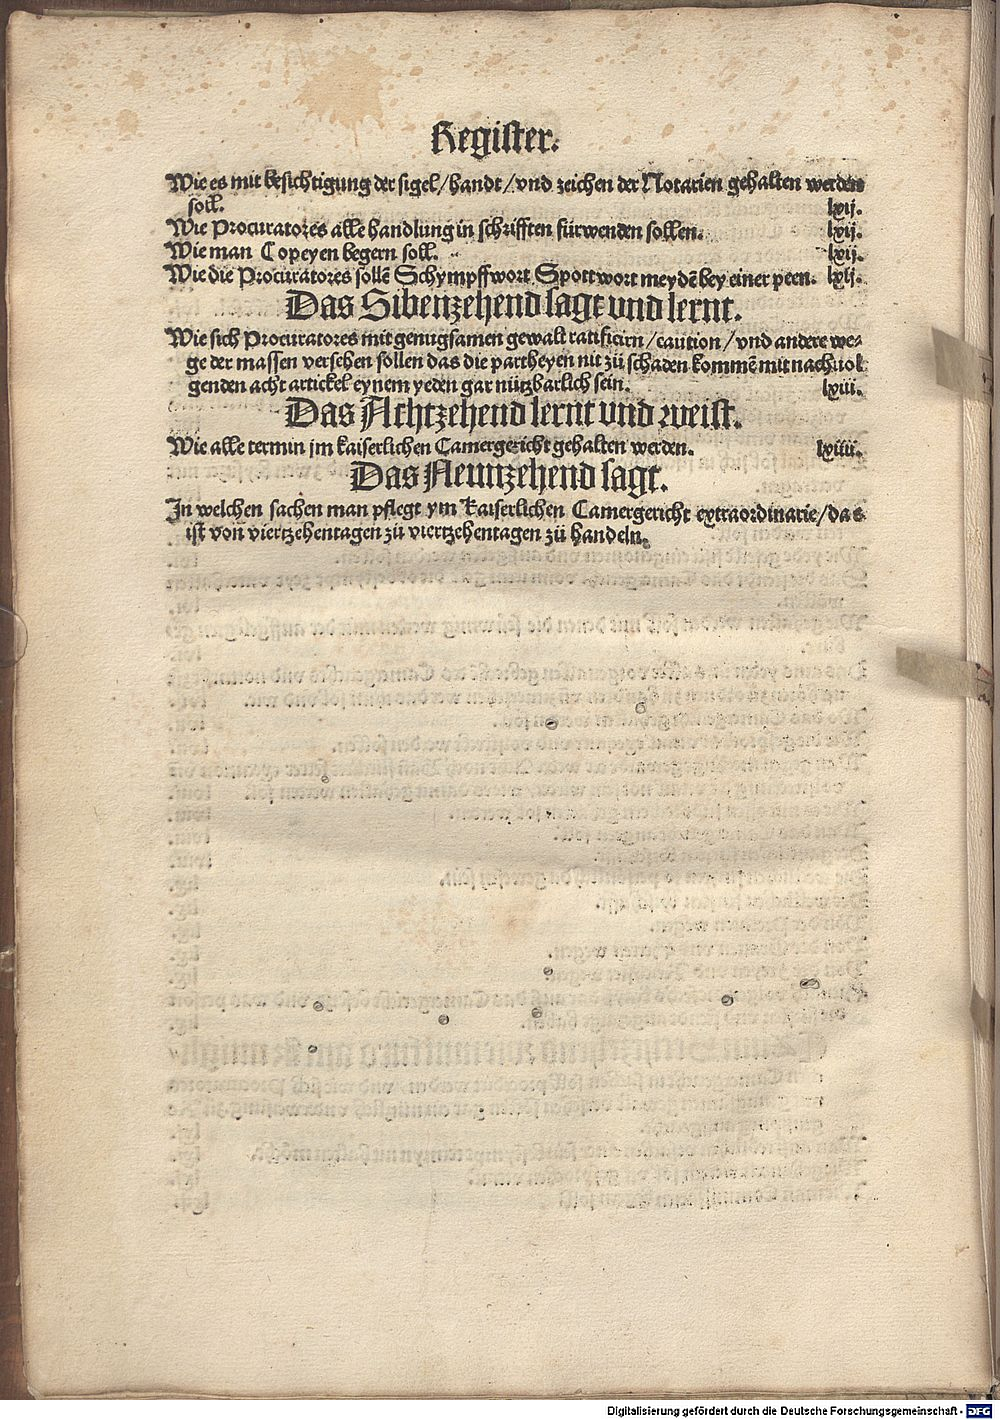 Register.
Wie es mit besichtigung der sigel/handt/vnd zeichen der Notarien gehalten werden
soll. lxij.
Wie Procuratores alle handlung in schrifften fürwenden sollen. lxij.
Wie man Copeyen begern soll. lxij.
Wie die Procuratores sollē Schympffwort Spottwort meydē bey einer peen. lxij.
Das Sibenzehend sagt vnd lernt.
Wie sich Procuratores mit genugsamen gewalt ratificirn/caution/vnd andere we-
ge der massen versehen sollen das die partheyen nit zů schaden kommē mit nachuol
genden acht artickel eynem yeden gar nützbarlich sein. lxiii.
Das Achtzehend lernt vnd weist.
Wie alle termin jm kaiserlichen Camergericht gehalten werden. lxiiii.
Das Neunzehend sagt.
In welchen sachen man pflegt ym Kaiserlichen Camergericht extraordinarie/das
ist von viertzehentagen zů viertzehentagen zů handeln.
Digitalisierung gefördert durch die Deutsche Forschungsgemeinschaft - DFG